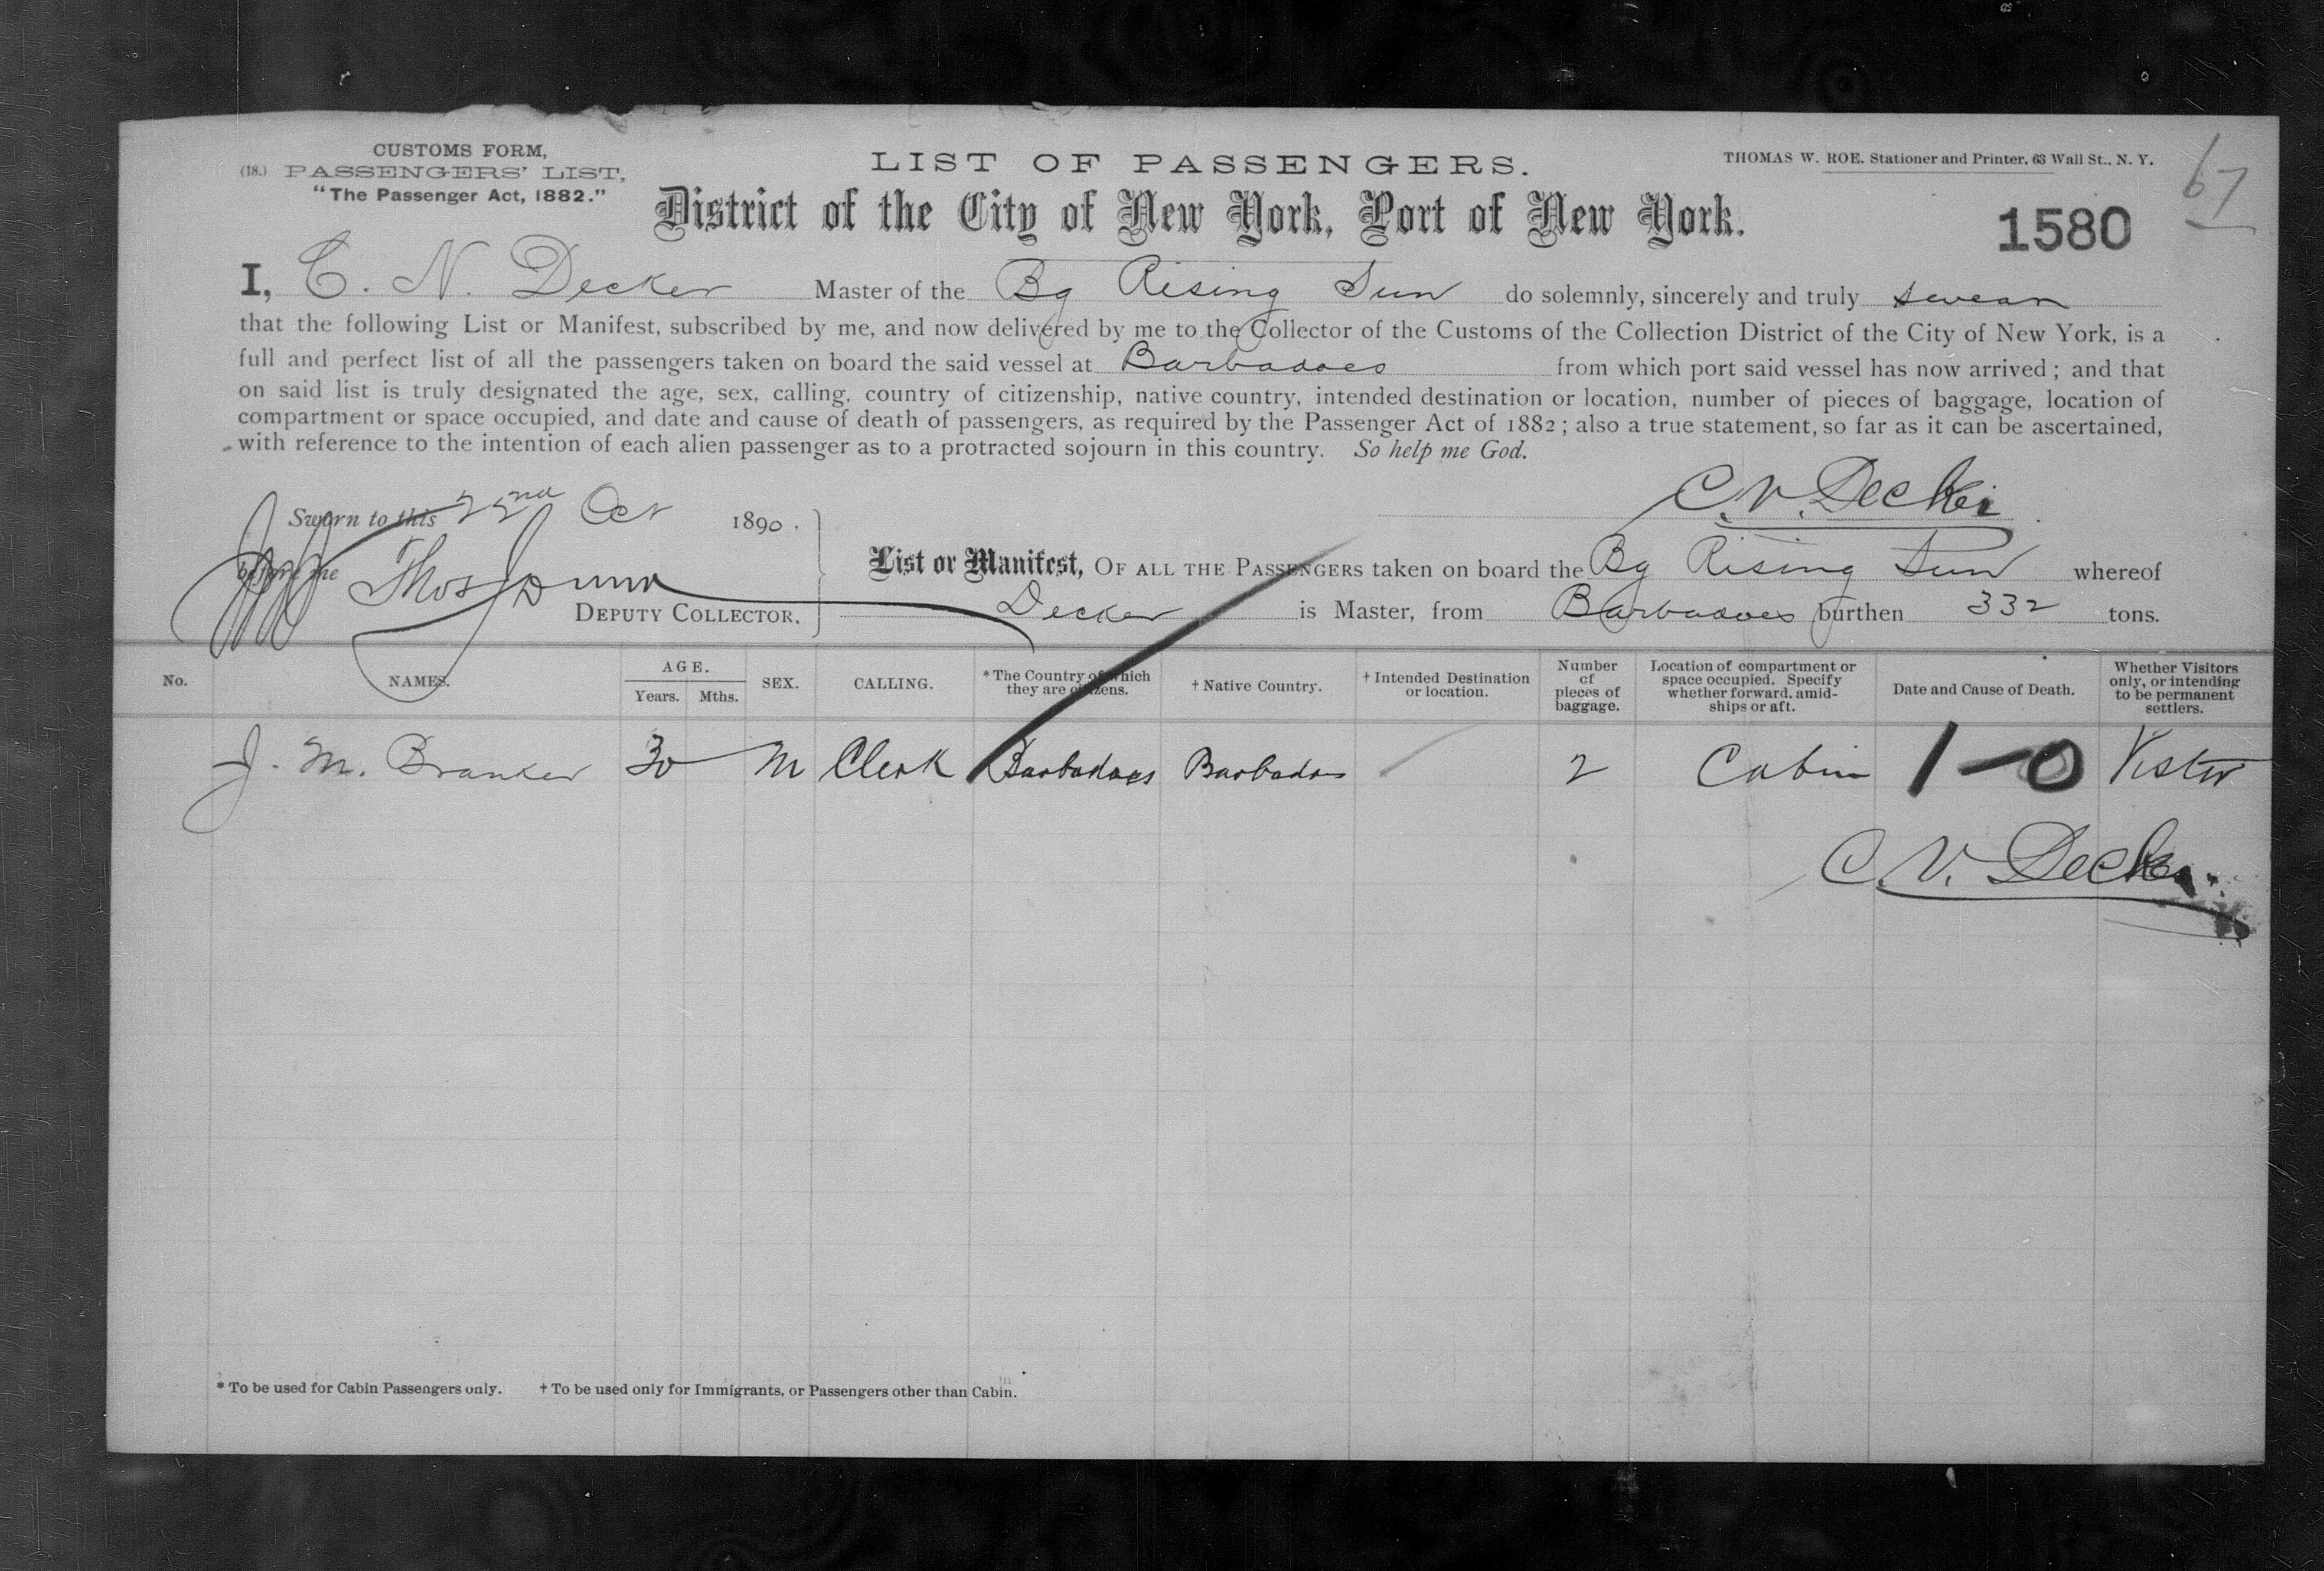 CUSTOMS FORM,
(18.) PASSENGERS' LIST,
"The Passenger Act, 1882."
LIST OF PASSENGERS.
THOMAS W. ROE. Stationer and Printer, 63 Wall St., N. Y.
67
District of the City of New York, Port of New York.
1580
I, C. N. Decker Master of the Bg Rising Sun do solemnly, sincerely and truly swear
that the following List or Manifest, subscribed by me, and now delivered by me to the Collector of the Customs of the Collection District of the City of New York, is a
full and perfect list of all the passengers taken on board the said vessel at Barbadoes from which port said vessel has now arrived; and that
on said list is truly designated the age, sex, calling, country of citizenship, native country, intended destination or location, number of pieces of baggage, location of
compartment or space occupied, and date and cause of death of passengers, as required by the Passenger Act of 1882; also a true statement, so far as it can be ascertained,
with reference to the intention of each alien passenger as to a protracted sojourn in this country. So help me God.
C. V. Decker
Sworn to this 22nd Oct 1890.
before me Thos J Dunn
DEPUTY COLLECTOR.
List or Manifest, OF ALL THE PASSENGERS taken on board the Bg Rising Sun whereof
Decker is Master, from Barbadoes burthen 332 tons.
No. NAMES. AGE. Years. Mths. SEX. CALLING. *The Country of which they are citizens. †Native Country. †Intended Destination or location. Number of pieces of baggage. Location of compartment or space occupied. Specify whether forward, amidships or aft. Date and Cause of Death. Whether Visitors only, or intending to be permanent settlers.
J. M. Branker 30 M Clerk Barbadoes Barbados 2 Cabin 1-0 Visitor
C. V. Decker
* To be used for Cabin Passengers only. † To be used only for Immigrants, or Passengers other than Cabin.